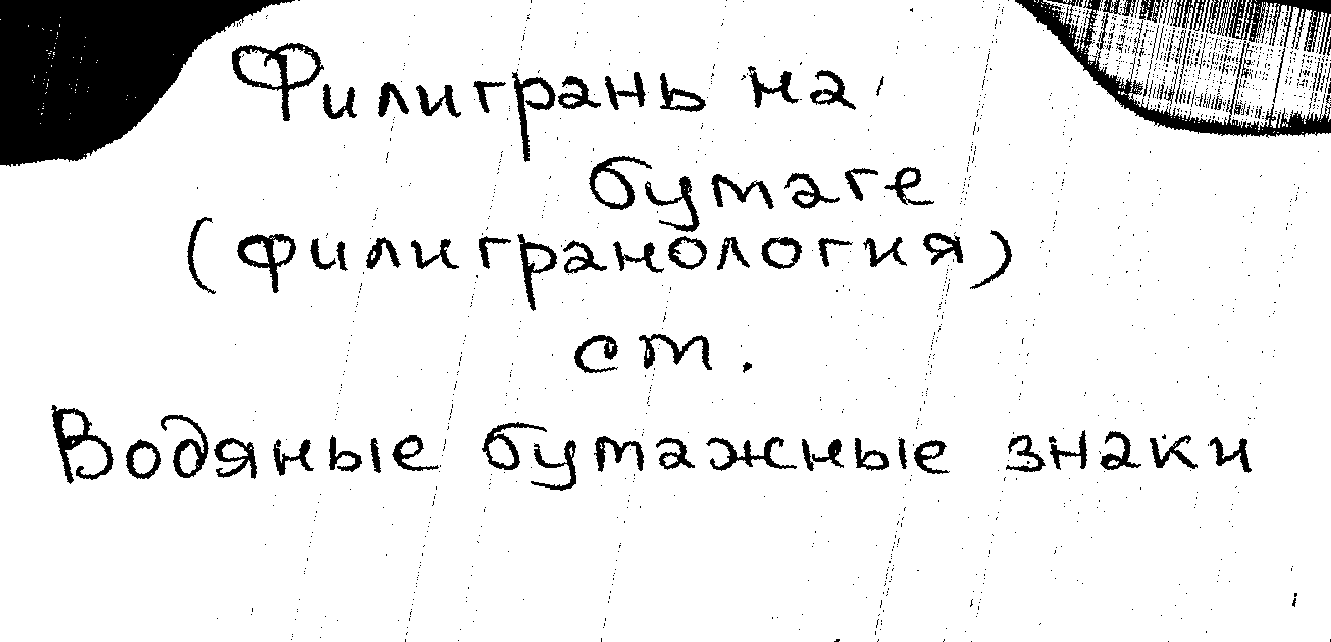 Филигрань на
бумаге
(филигранология)
ст.
Водяные бумажные знаки